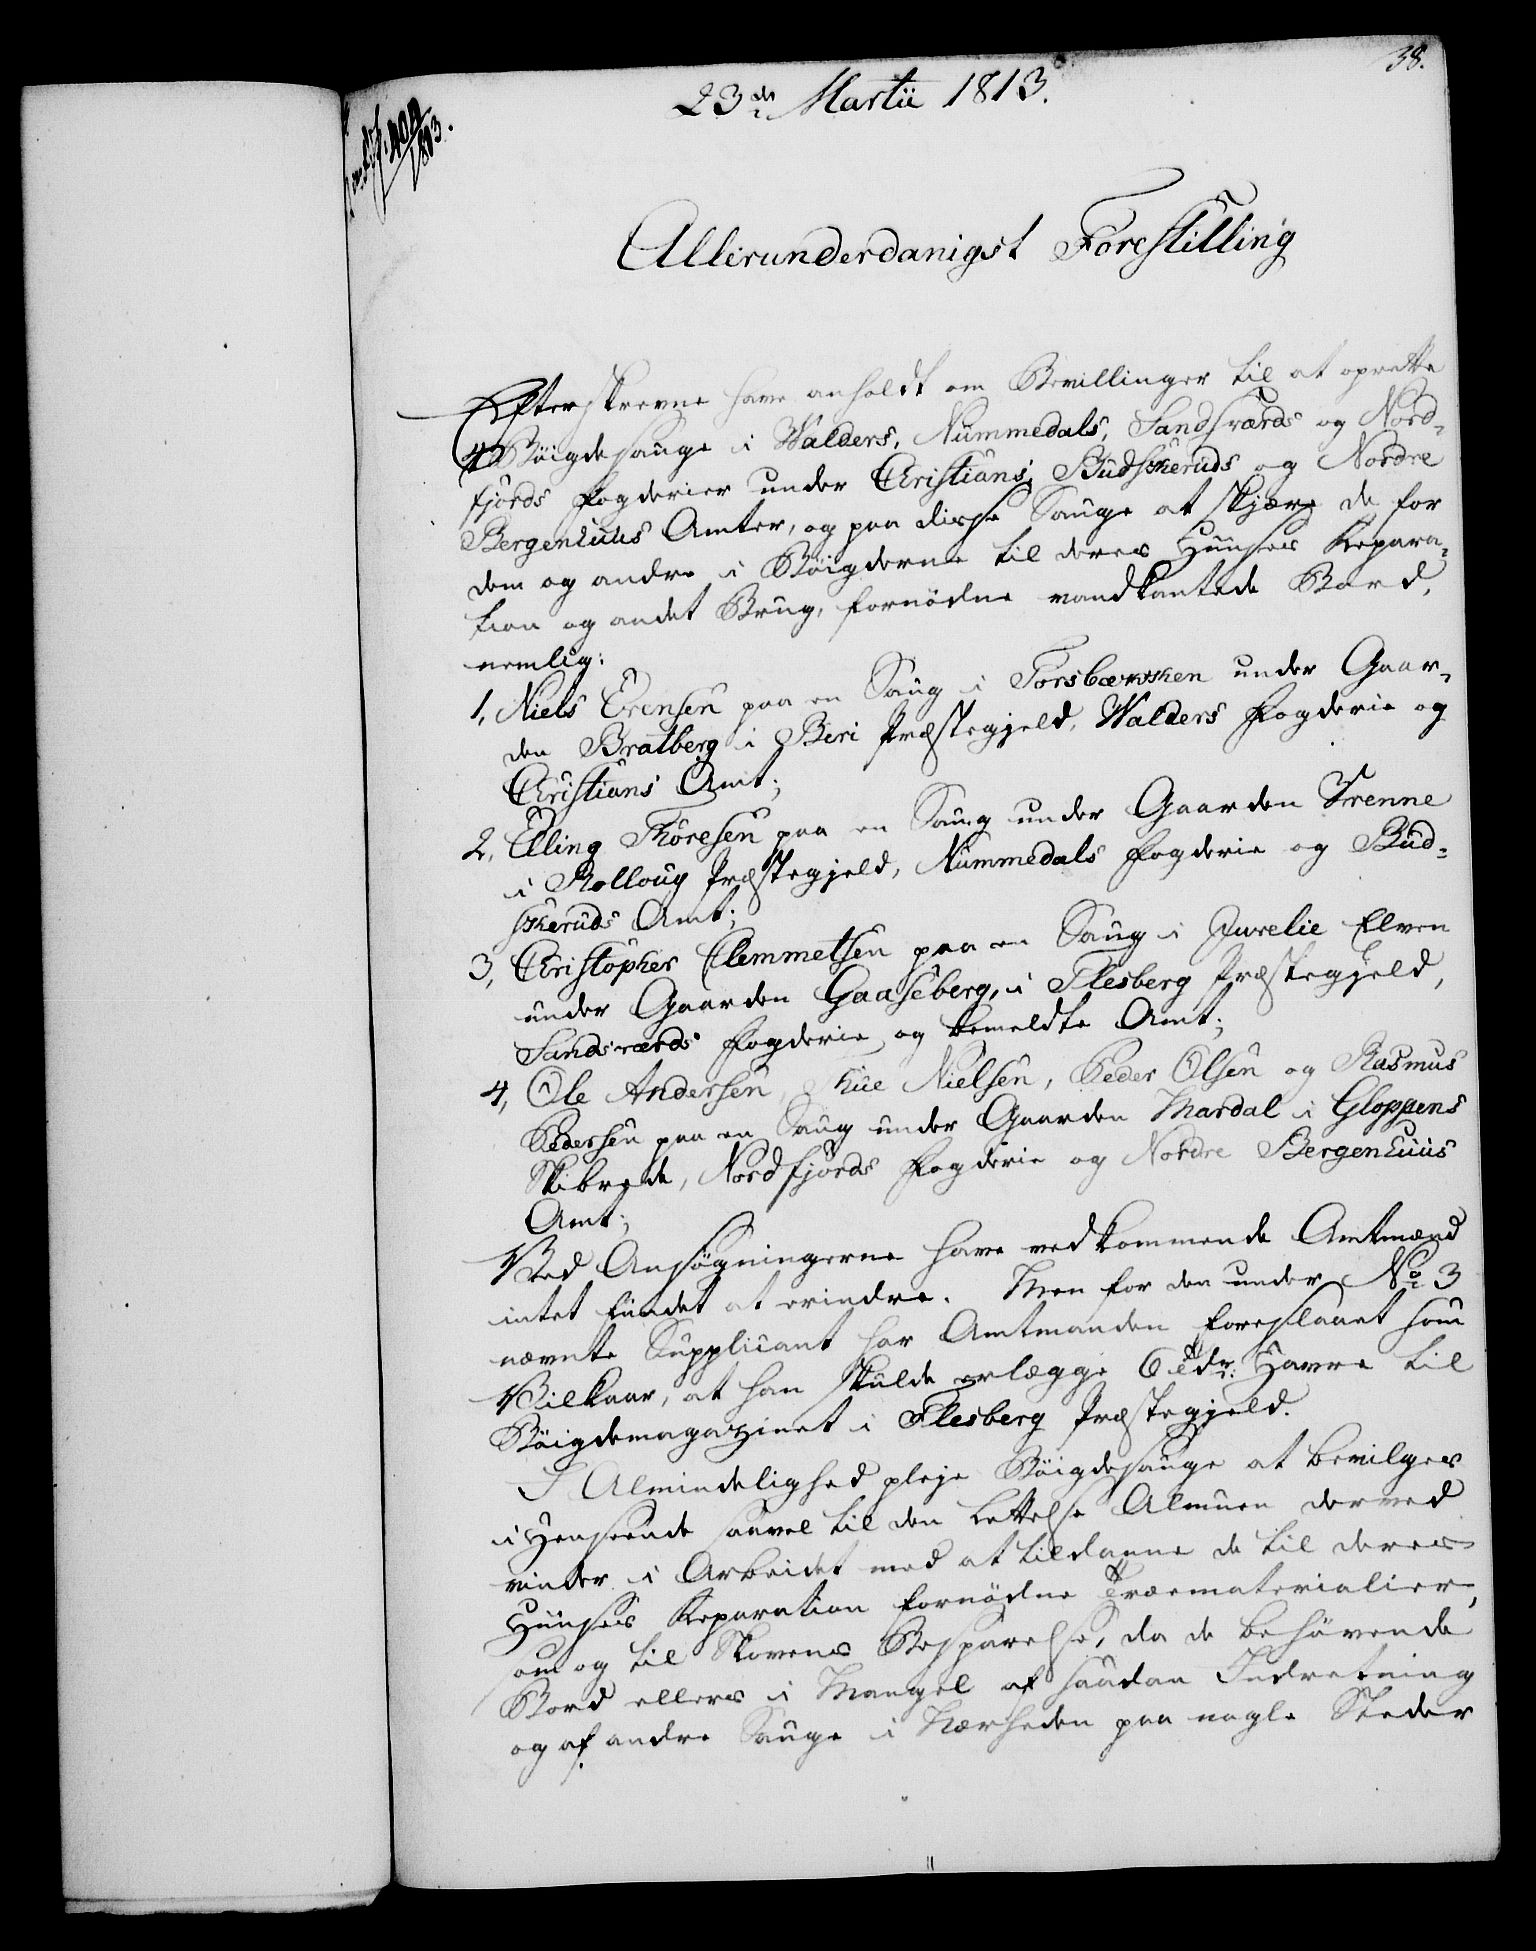 38.
23de Martii 1813.
1813.
Allerunderdanigst Forestilling
Efterskrevne have anholdt om Bevillinger til at oprette
4 Böigdesauge i Walders, Nummedals, Sandsværds og Nord-
fjords Fogderier under Christians, Budskeruds og Nordre
Bergenhuus Amter, og paa disse Sauge at skjære de for
dem og andre i Böigderne til deres Huuses Repara-
tion og andet Brug, fornödne vandkantede Bord,
nemlig:
1, Niels Evensen paa en Saug i under Gaar-
den Bratberg i Biri Præstegjeld, Walders Fogderie og
Christians Amt;
2, Elling Thoresen paa en Saug under Gaarden Vrenne
i Rolloug Præstegjeld, Nummedals Fogderie og Bud-
skeruds Amt;
3, Christopher Clemmetsen paa en Saug i Jurelie Elven
under Gaarden Gaaseberg, i Flesberg Præstegjeld,
Sandsværds Fogderie og bemeldte Amt;
4, Ole Andersen, Thue Nielsen, Peder Olsen og Rasmus
Pedersen paa en Saug under Gaarden Mardal i Gloppens
Skibrede, Nordfjords Fogderie og Nordre Bergenhuus
Amt;
Ved Ansögningerne have vedkommende Amtmænd
intet fundet at erindre. Men for den under No 3
nævnte Supplicant har Amtmanden foreslaaet som
Vilkaar, at han skulde erlægge 6 Tdr: Havre til
Böigdemagazinet i Flesberg Præstegjeld.
I Almindelighed pleje Böigdesauge at bevilges
i Henseende saavel til den Lettelse Almuen derved
vinder i Arbeidet med at tildanne de til deres
Huuses Reparation fornödne Træematerialier,
som og til Skovens Besparelse, da de behövende
Bord ellers i Mangel af saadan Indretning
og af andre Sauge i Nærheden paa nogle Steder